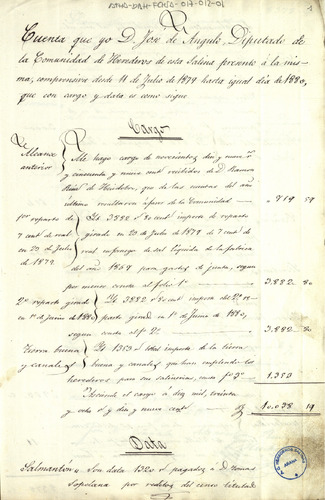 ATHA-DAH-FCHSA-017-012-01
Cuenta que yo D. José de Angulo, Diputado de
la Comunidad de Herederos de esta Salina presento á la mis-
ma, comprensiva desde 11 de Julio de 1879 hasta igual día de 1880,
que con cargo y data es como sigue
Cargo
Alcance
anterior
Me hago cargo de novecientos diez y nueve
y cincuenta y nueve cent recibidos de D. Ramon
que de las cuentas del año
último resultaron á favor de la Comunidad
919 59
1er reparto de
7 cent de real
en 23 de Julio
de 1879
Yd 3882 80 cent importe de reparto
girado en 23 de Julio de 1879 de 7 cent de
real en fanega de sal líquida de la fabrica
del año 1869 para gastos de junta, segun
por menor consta al folio 1º
3.882 80
2º reparto girado
en 1º de junio de 1880
Yd 3882 80 cent importe del 2º re-
parto girado en 1º de Junio de 1880,
segun consta al fº 2º
3.882 80
Tierra buena
y canales
Yd 1353 total importe de la tierra
buena y canales que han empleado los
herederos para sus salinerias, consta fº 3º
1.353
Asciende el cargo á diez mil, treinta
y ocho y diez y nueve cent
10.038 19
Data
Salmantón
Son data 1320 pagados á D. Tomas
Sopelana por reditos del censo titulado